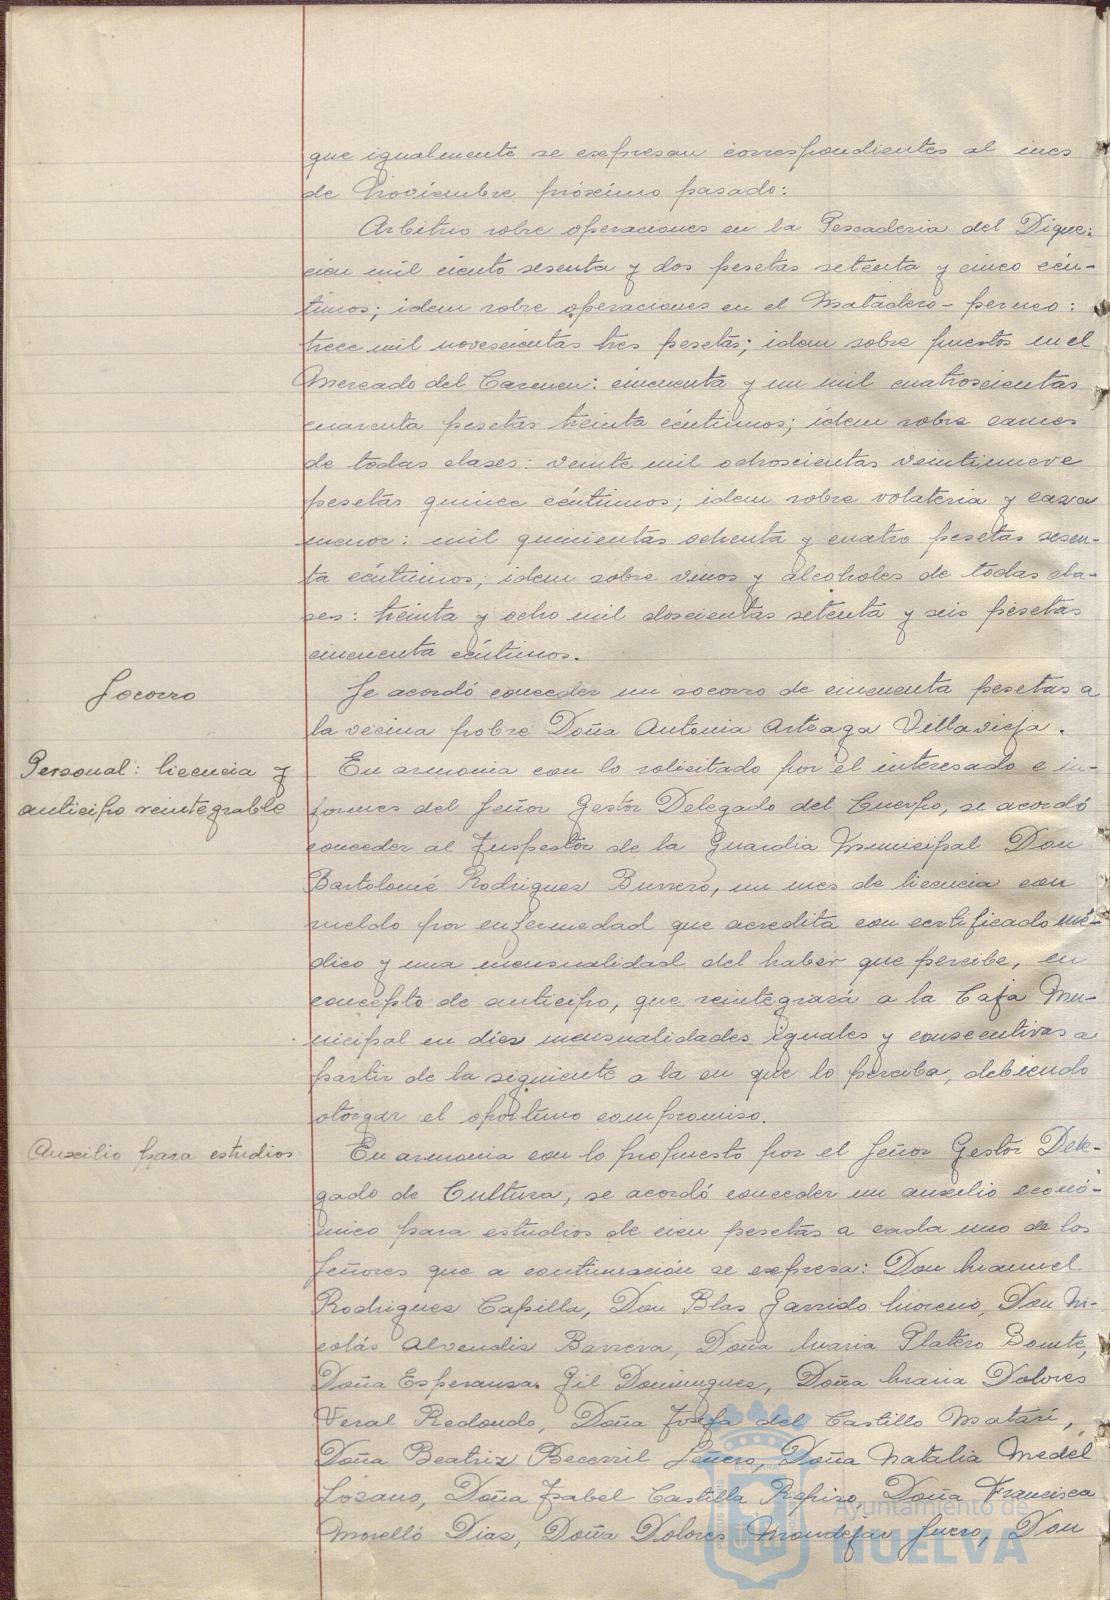 que igualmente se expresan correspondientes al mes
de Noviembre próximo pasado:
Arbitrio sobre operaciones en la Pescadería del Dique:
cien mil ciento sesenta y dos pesetas setenta y cinco cén-
timos; idem sobre operaciones en el Matadero-perneo:
trece mil novescientas tres pesetas; idem sobre puestos en el
Mercado del Carmen: cincuenta y un mil cuatroscientas
cuarenta pesetas treinta céntimos; idem sobre carnes
de todas clases: veinte mil ochoscientas veintinueve
pesetas quince céntimos; idem sobre volatería y caza
menor: mil quinientas ochenta y cuatro pesetas sesen-
ta céntimos; idem sobre vinos y alcoholes de todas cla-
ses: treinta y ocho mil doscientas setenta y seis pesetas
cincuenta céntimos.
Socorro
Se acordó conceder un socorro de cincuenta pesetas a
la vecina pobre Doña Antonia Arteaga Villavieja.
Personal: licencia y
anticipo reintegrable
En armonia con lo solicitado por el interesado e in-
formes del Señor Gestor Delegado del Cuerpo, se acordó
conceder al Inspector de la Guardia Municipal Don
Bartolomé Rodriguez Burrero, un mes de licencia con
sueldo por enfermedad que acredita con certificado mé-
dico y una mensualidad del haber que percibe, en
concepto de anticipo, que reintegrará a la Caja Mu-
nicipal en diez mensualidades iguales y consecutivas a
partir de la siguiente a la en que lo perciba, debiendo
otorgar el oportuno compromiso.
Auxilio para estudios
En armonia con lo propuesto por el Señor Gestor Dele-
gado de Cultura, se acordó conceder un auxilio econó-
mico para estudios de cien pesetas a cada uno de los
Señores que a continuación se expresa: Don Manuel
Rodriguez Capilla, Don Blas Garrido Moreno, Don Ni-
colás Alvendiz Barrera, Doña Maria Platero
Doña Esperanza Gil Dominguez, Doña Maria Dolores
Redondo, Doña Josefa del Castillo Matari,
Doña Beatriz Becerril Señero, Doña Natalia Medel
Lozano, Doña Isabel Castilla Repiso, Doña Francisca
Morelló Diaz, Doña Dolores Mondejar Suero, Don
Ayuntamiento de
HUELVA